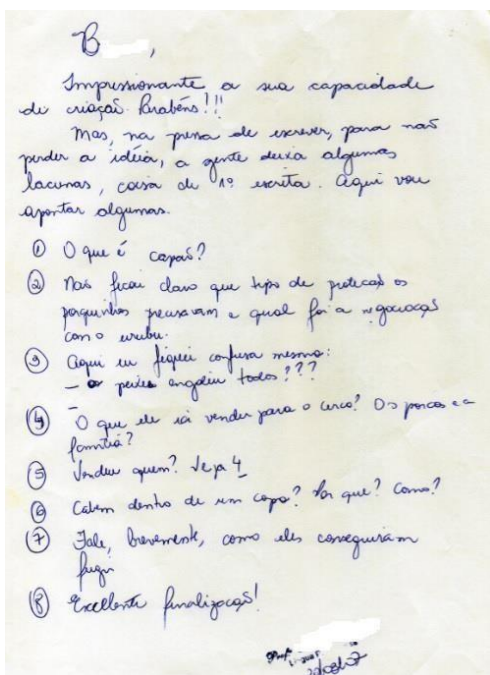 B      ,
Impressionante a sua capacidade
de criação. Parabéns!!!
Mas, na pressa de escrever, para não
perder a idéia, a gente deixa algumas
lacunas, coisa de 1ª escrita. Aqui vou
apontar algumas.
① O que é capaõ?
② Não ficou claro que tipo de proteção os
porquinhos precisavam e qual foi a negociação
com o urubu.
③ Aqui eu fiquei confusa mesmo:
– o peixe engoliu todos???
④ O que ele ia vender para o circo? Os porcos e a
família?
⑤ Vendeu quem? Veja 4
⑥ Cabem dentro de um copo? Por que? Como?
⑦ Fale, brevemente, como eles conseguiram
fugir
⑧ Excellente finalização!
Profª